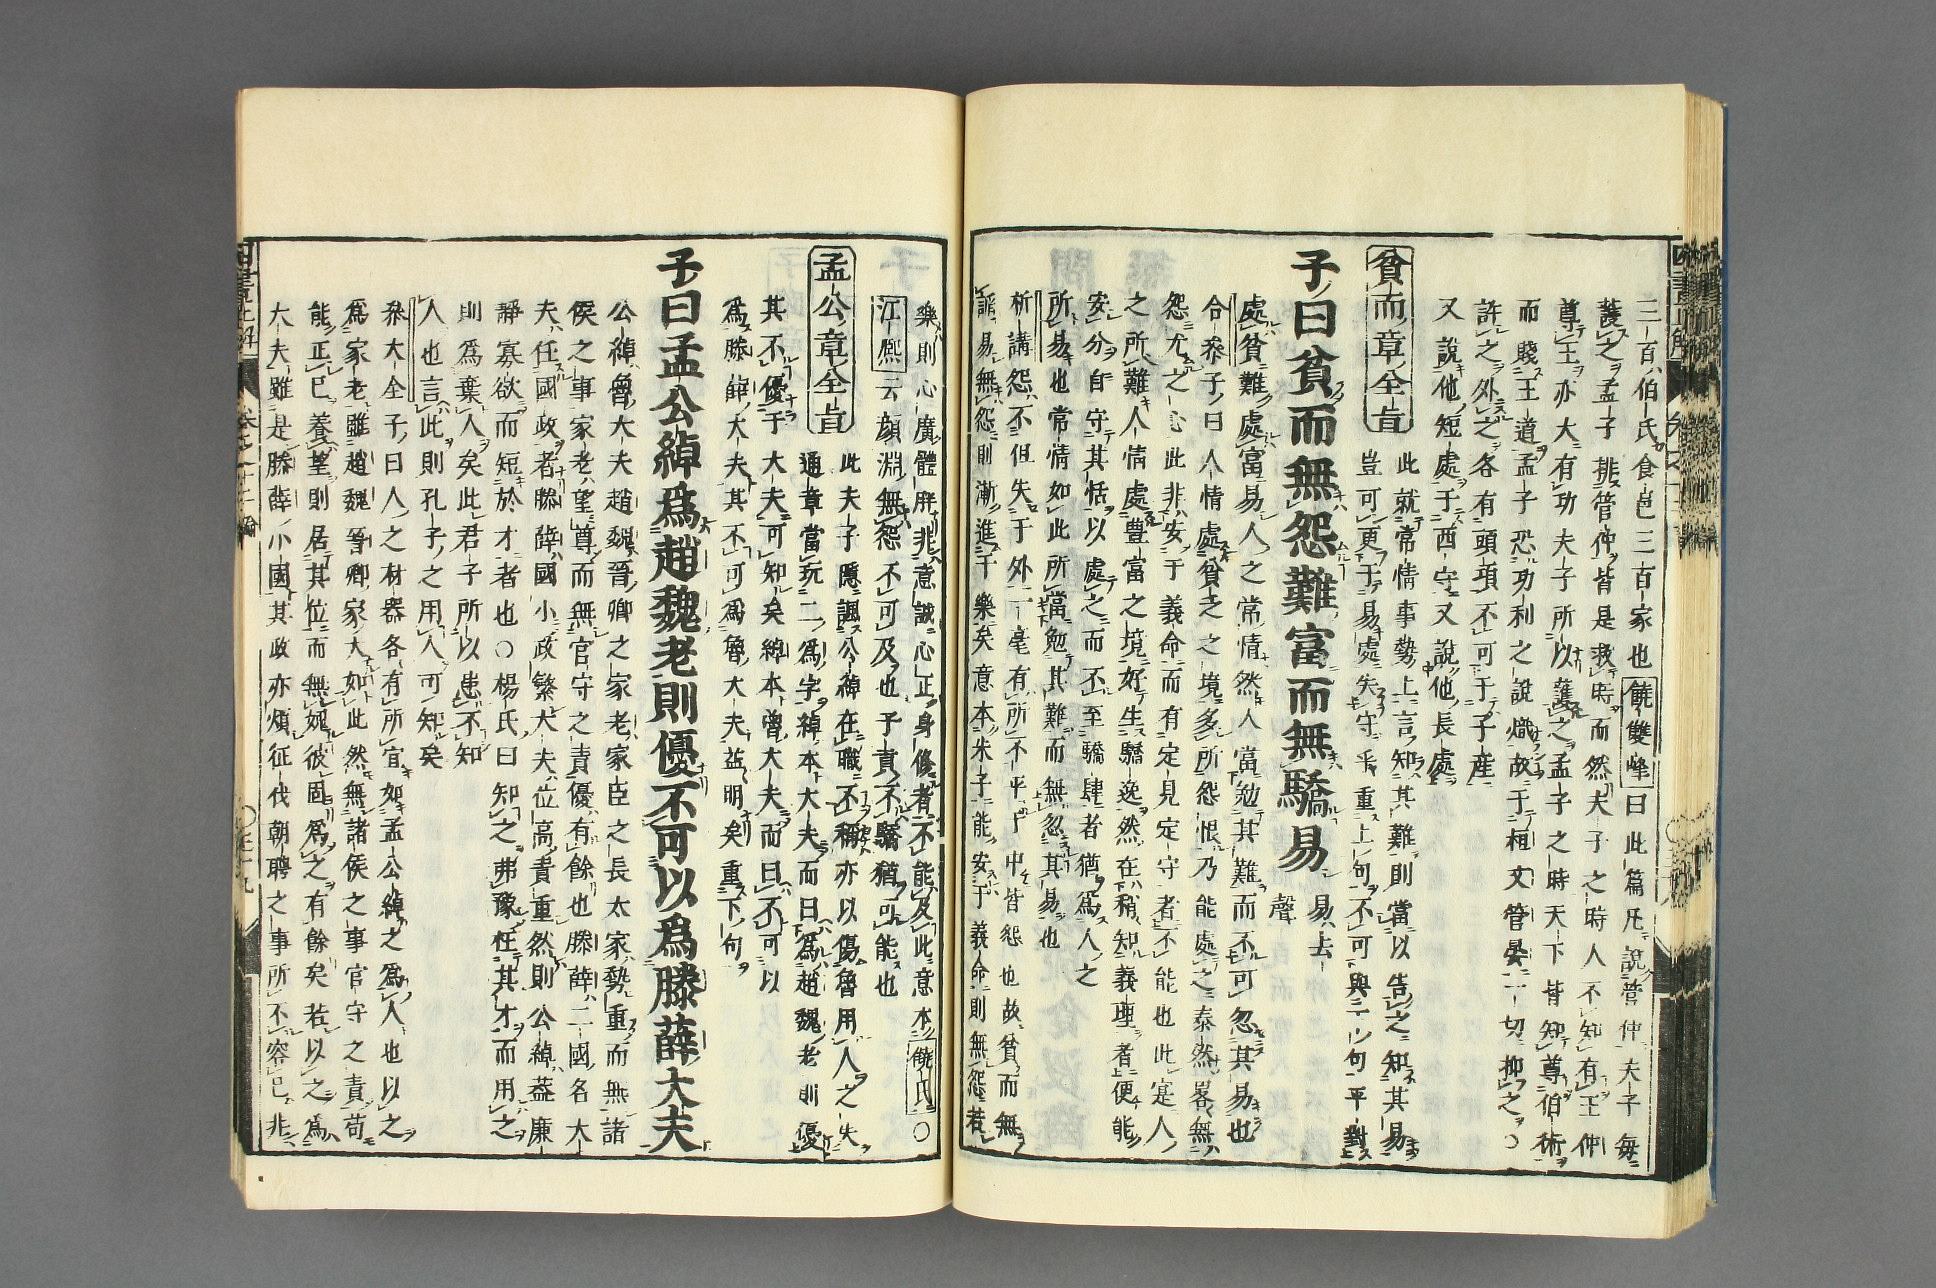 二百伯氏食邑三百家也饒雙峰曰此篇凡說管仲夫子每
護之孟子排管仲皆是救時而然夫子之時人不知有王仲
尊王亦大有功夫子所以護之孟子之時天下皆知尊伯術
而賤王道孟子恐功利之說熾故于桓文管晏一切抑之○
許之外之各有頭項不可于子產
又說他短處于西守又說他長處
貧而章全旨
此就常情事勢上言知其難則當以告之知其易
豈可更于易處失守乎重上句不可與二句平對
子曰貧而無怨難富而無驕易
易去聲
處貧難處富易人之常情然人當勉其難而不可忽其易也
合參子曰人情處貧乏之境多所怨恨乃能處之泰然畧無
怨尤之心此非安于義命而有定見定守者不能也此寔人
之所難人情處豊富之境好生驕逸然在稍知義理者便能
安分自守其恬以處之而不至驕肆者猶爲人之
所易也常情如此所當勉其難而無忽其易也
析講怨不但失于外一毫有所不平于中皆怨也故貧而無
謟易無怨則漸進于樂矣意本朱子能安于義命則無怨若
樂則心廣體胖非意誠心正身修者不能及此意本饒氏○
江熙云顔淵無怨不可及也子貢不驕猶可能也
孟公章全旨
此夫子隱諷公綽在職不稱亦以傷魯用人之失
通章當玩二爲字綽本大夫而曰爲趙魏老則優
其不優于大夫可知矣綽本魯大夫而曰不可以
爲滕薛大夫其不可爲魯大夫益明矣重下句
子曰孟公綽爲趙魏老則優不可以爲滕薛大夫
公綽魯大夫趙魏晉卿之家老家臣之長大家勢重而無諸
侯之事家老望尊而無官守之責優有餘也滕薛二國名大
夫任國政者滕薛國小政繁大夫位高責重然則公綽蓋廉
靜寡欲而短於才者也○楊氏曰知之弗豫枉其才而用之
則爲棄人矣此君子所以患不知
人也言此則孔子之用人可知矣
參大全子曰人之材器各有所宜如孟公綽之爲人也以之
爲家老雖趙魏晉卿家大如此然無諸侯之事官守之責苟
能正己養望則居其位而無媿彼固爲之有餘矣若以之爲
大夫雖是滕薛小國其政亦煩征伐朝聘之事所不容已非